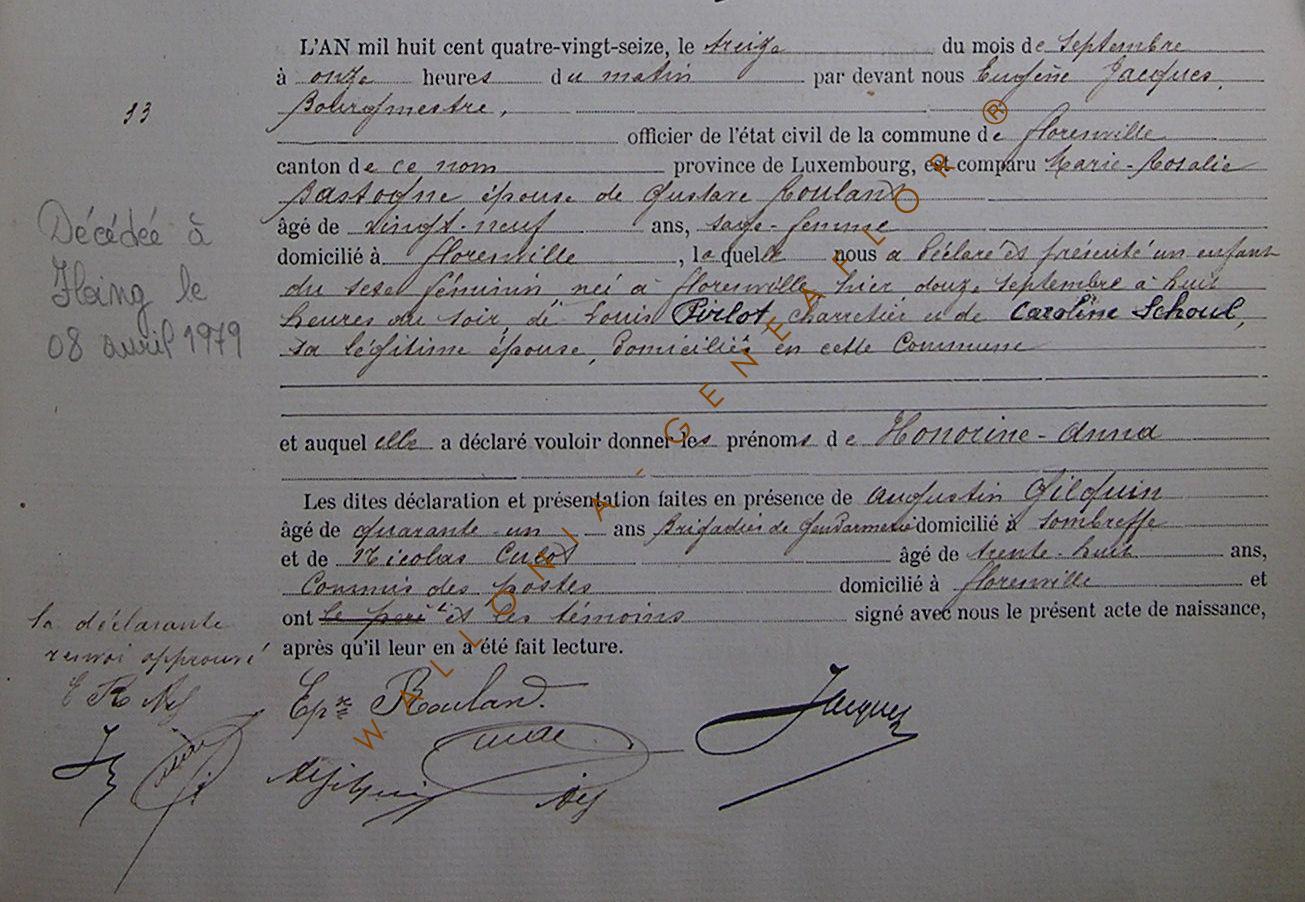 L'AN mil huit cent quatre-vingt-seize, le treize du mois de Septembre
à onze heures du matin par devant nous Eugène Jacques,
Bourgmestre,
33
officier de l'état civil de la commune de florenville
canton de ce nom province de Luxembourg, est comparu Marie-Rosalie
Bastogne épouse de Gustave Rouland
âgé de vingt-neuf ans, sage-femme
domicilié à florenville, laquelle nous a déclaré et présenté un enfant
du sexe féminin né à florenville hier douze septembre à huit
heures du soir, de Louis Pirlot charretier et de Caroline Schoul,
sa légitime épouse, domiciliés en cette Commune
Décédée à
le
08 avril 1979
et auquel elle a déclaré vouloir donner les prénoms de Honorine-Anna
Les dites déclaration et présentation faites en présence de Augustin Gilquin
âgé de quarante-un ans Brigadier de Gendarmerie domicilié à Sombreffe
et de Nicolas âgé de trente-huit ans,
Commis des postes domicilié à florenville et
ont le père et les témoins signé avec nous le présent acte de naissance,
après qu'il leur en a été fait lecture.
la déclarante
renvoi approuvé
E R
Epse Rouland.
Jacques
WALLONIA-GENEAFLOR ®